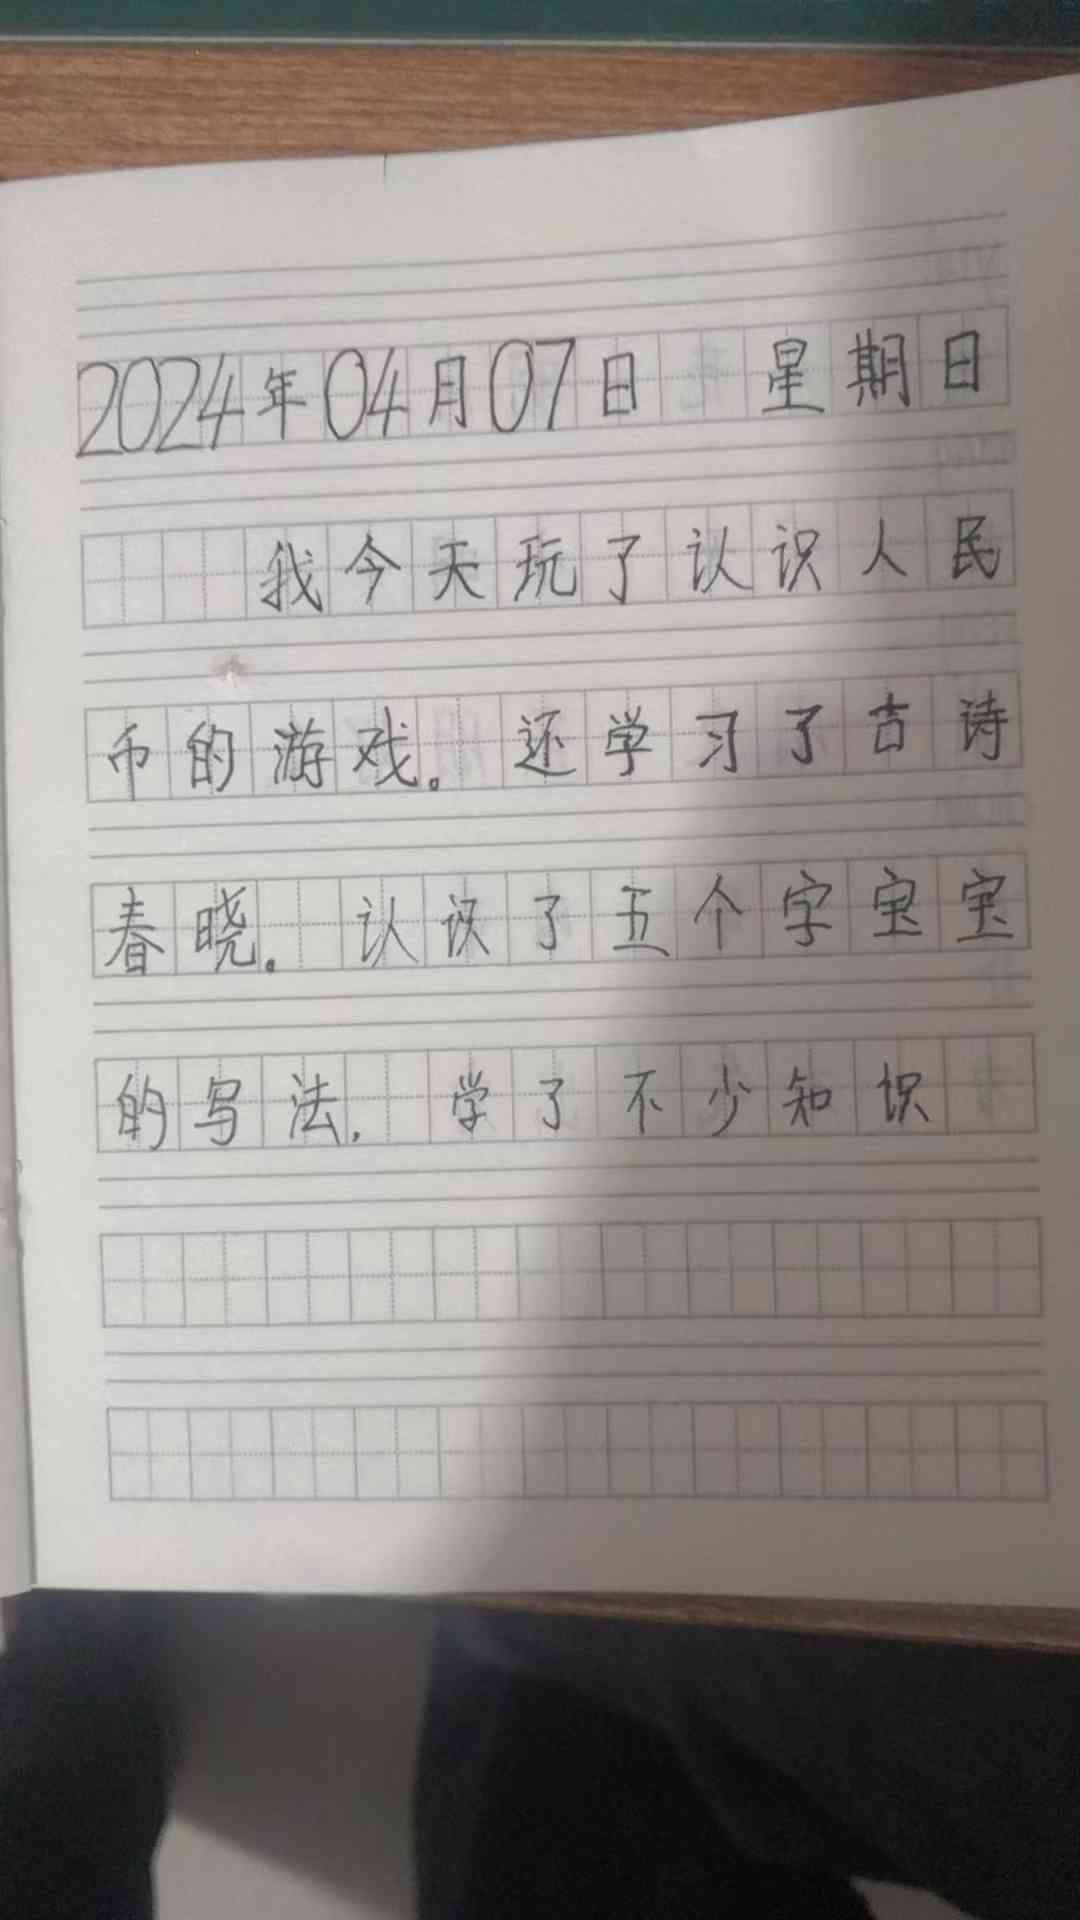 2024年04月07日 星期日
我今天玩了认识人民
币的游戏。还学习了古诗
春晓。认识了五个字宝宝
的写法，学了不少知识